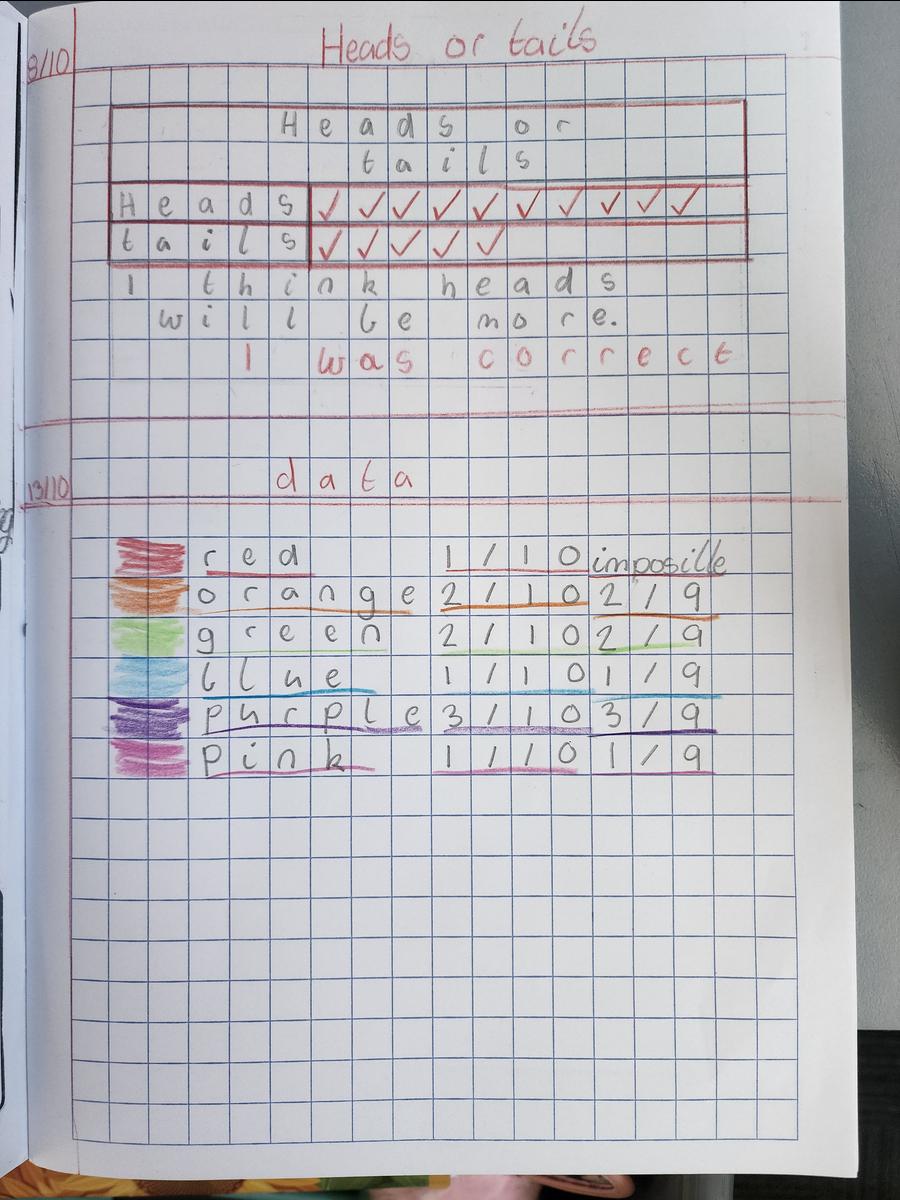 Heads or tails
8/10
Heads or
tails
Heads ✓ ✓ ✓ ✓ ✓ ✓ ✓ ✓ ✓ ✓
tails ✓ ✓ ✓ ✓ ✓
I think heads
will be more.
I was correct
13/10 data
red 1/10 imposille
orange 2/10 2/9
green 2/10 2/9
blue 1/10 1/9
purple 3/10 3/9
pink 1/10 1/9